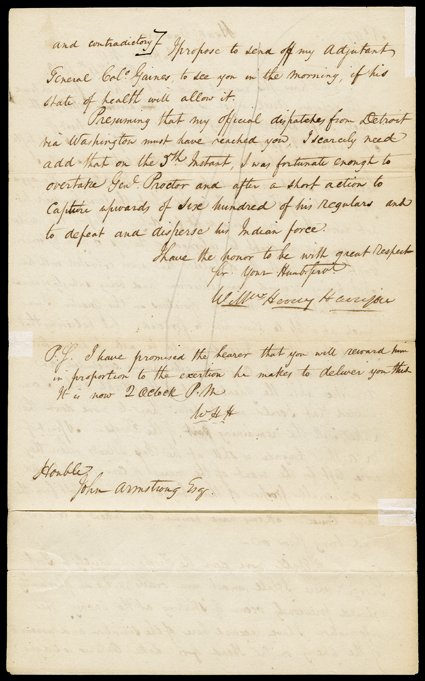 and contradictory] I propose to send off my Adjutant
General Colo. Gaines, to see you in the morning, if his
state of health will allow it.
Presuming that my official dispatches from Detroit
via Washington must have reached you, I scarcely need
add that on the 5th Instant, I was fortunate enough to
overtake Genl. Proctor and after a short action to
Capture upwards of Six hundred of his regulars and
to defeat and disperse his Indian force.
I have the honor to be with great Respect
Sir Your Humb Servt
Willm Henry Harrison
P.S. I have promised the bearer that you will reward him
in proportion to the exertion he makes to deliver you this
It is now 2 Oclock P.M
W H H
Honble
John Armstrong Esq.